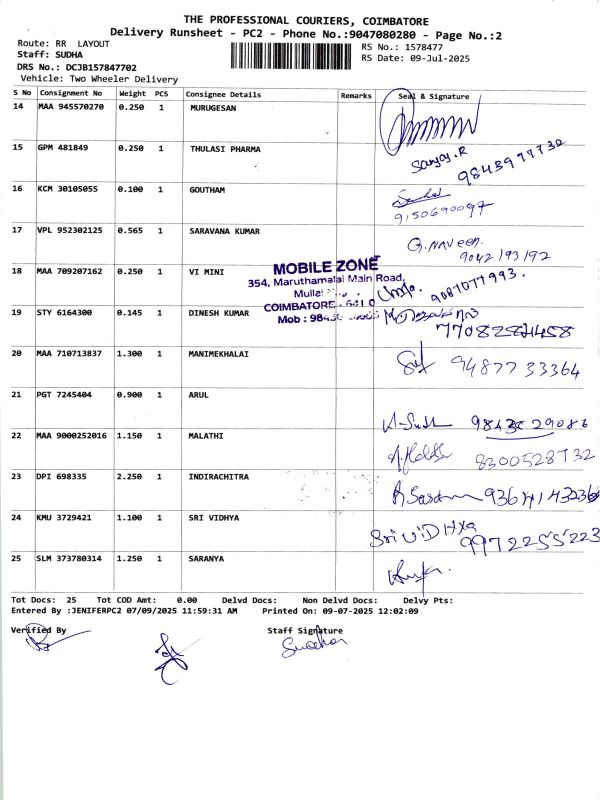 THE PROFESSIONAL COURIERS, COIMBATORE
Delivery Runsheet - PC2 - Phone No.:9047080280 - Page No.:2
Route: RR LAYOUT
Staff: SUDHA
DRS No.: DCJB157847702
Vehicle: Two Wheeler Delivery
RS No.: 1578477
RS Date: 09-Jul-2025
S No Consignment No Weight PCS Consignee Details Remarks Seal & Signature
14 MAA 945570270 0.250 1 MURUGESAN
15 GPM 481849 0.250 1 THULASI PHARMA
Sanjay.R 9843977730
16 KCM 30105055 0.100 1 GOUTHAM
9150690097
17 VPL 952302125 0.565 1 SARAVANA KUMAR
G. Naveen. 9042193192
18 MAA 709207162 0.250 1 VI MINI
MOBILE ZONE
354, Maruthamalai Main Road,
COIMBATORE
9087077993.
19 STY 6164300 0.145 1 DINESH KUMAR
20 MAA 710713837 1.300 1 MANIMEKHALAI
9487733364
21 PGT 7245404 0.900 1 ARUL
22 MAA 9000252016 1.150 1 MALATHI
8300528732
23 DPI 698335 2.250 1 INDIRACHITRA
24 KMU 3729421 1.100 1 SRI VIDHYA
Sri ViDHya
9972255223
25 SLM 373780314 1.250 1 SARANYA
Tot Docs: 25 Tot COD Amt: 0.00 Delvd Docs: Non Delvd Docs: Delvy Pts:
Entered By :JENIFERPC2 07/09/2025 11:59:31 AM Printed On: 09-07-2025 12:02:09
Verified By
Staff Signature